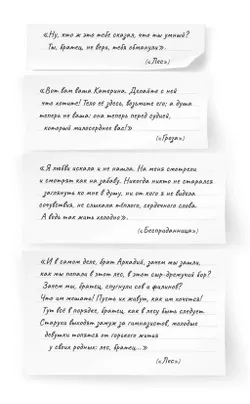 «Ну, кто ж это тебе сказал, что ты умный?
Ты, братец, не верь, тебя обманули».
(«Лес»)
«Вот вам ваша Катерина. Делайте с ней
что хотите! Тело её здесь, возьмите его; а душа
теперь не ваша: она теперь перед судией,
который милосерднее вас!»
(«Гроза»)
«Я любви искала и не нашла. На меня смотрели
и смотрят как на забаву. Никогда никто не старался
заглянуть ко мне в душу, ни от кого я не видела
сочувствия, не слыхала тёплого, сердечного слова.
А ведь так жить холодно».
(«Бесприданница»)
«И в самом деле, брат Аркадий, зачем мы зашли,
как мы попали в этот лес, в этот сыр-дремучий бор?
Зачем мы, братец, спугнули сов и филинов?
Что им мешать! Пусть их живут, как им хочется!
Тут всё в порядке, братец, как в лесу быть следует.
Старухи выходят замуж за гимназистов, молодые
девушки топятся от горького житья
у своих родных: лес, братец...»
(«Лес»)